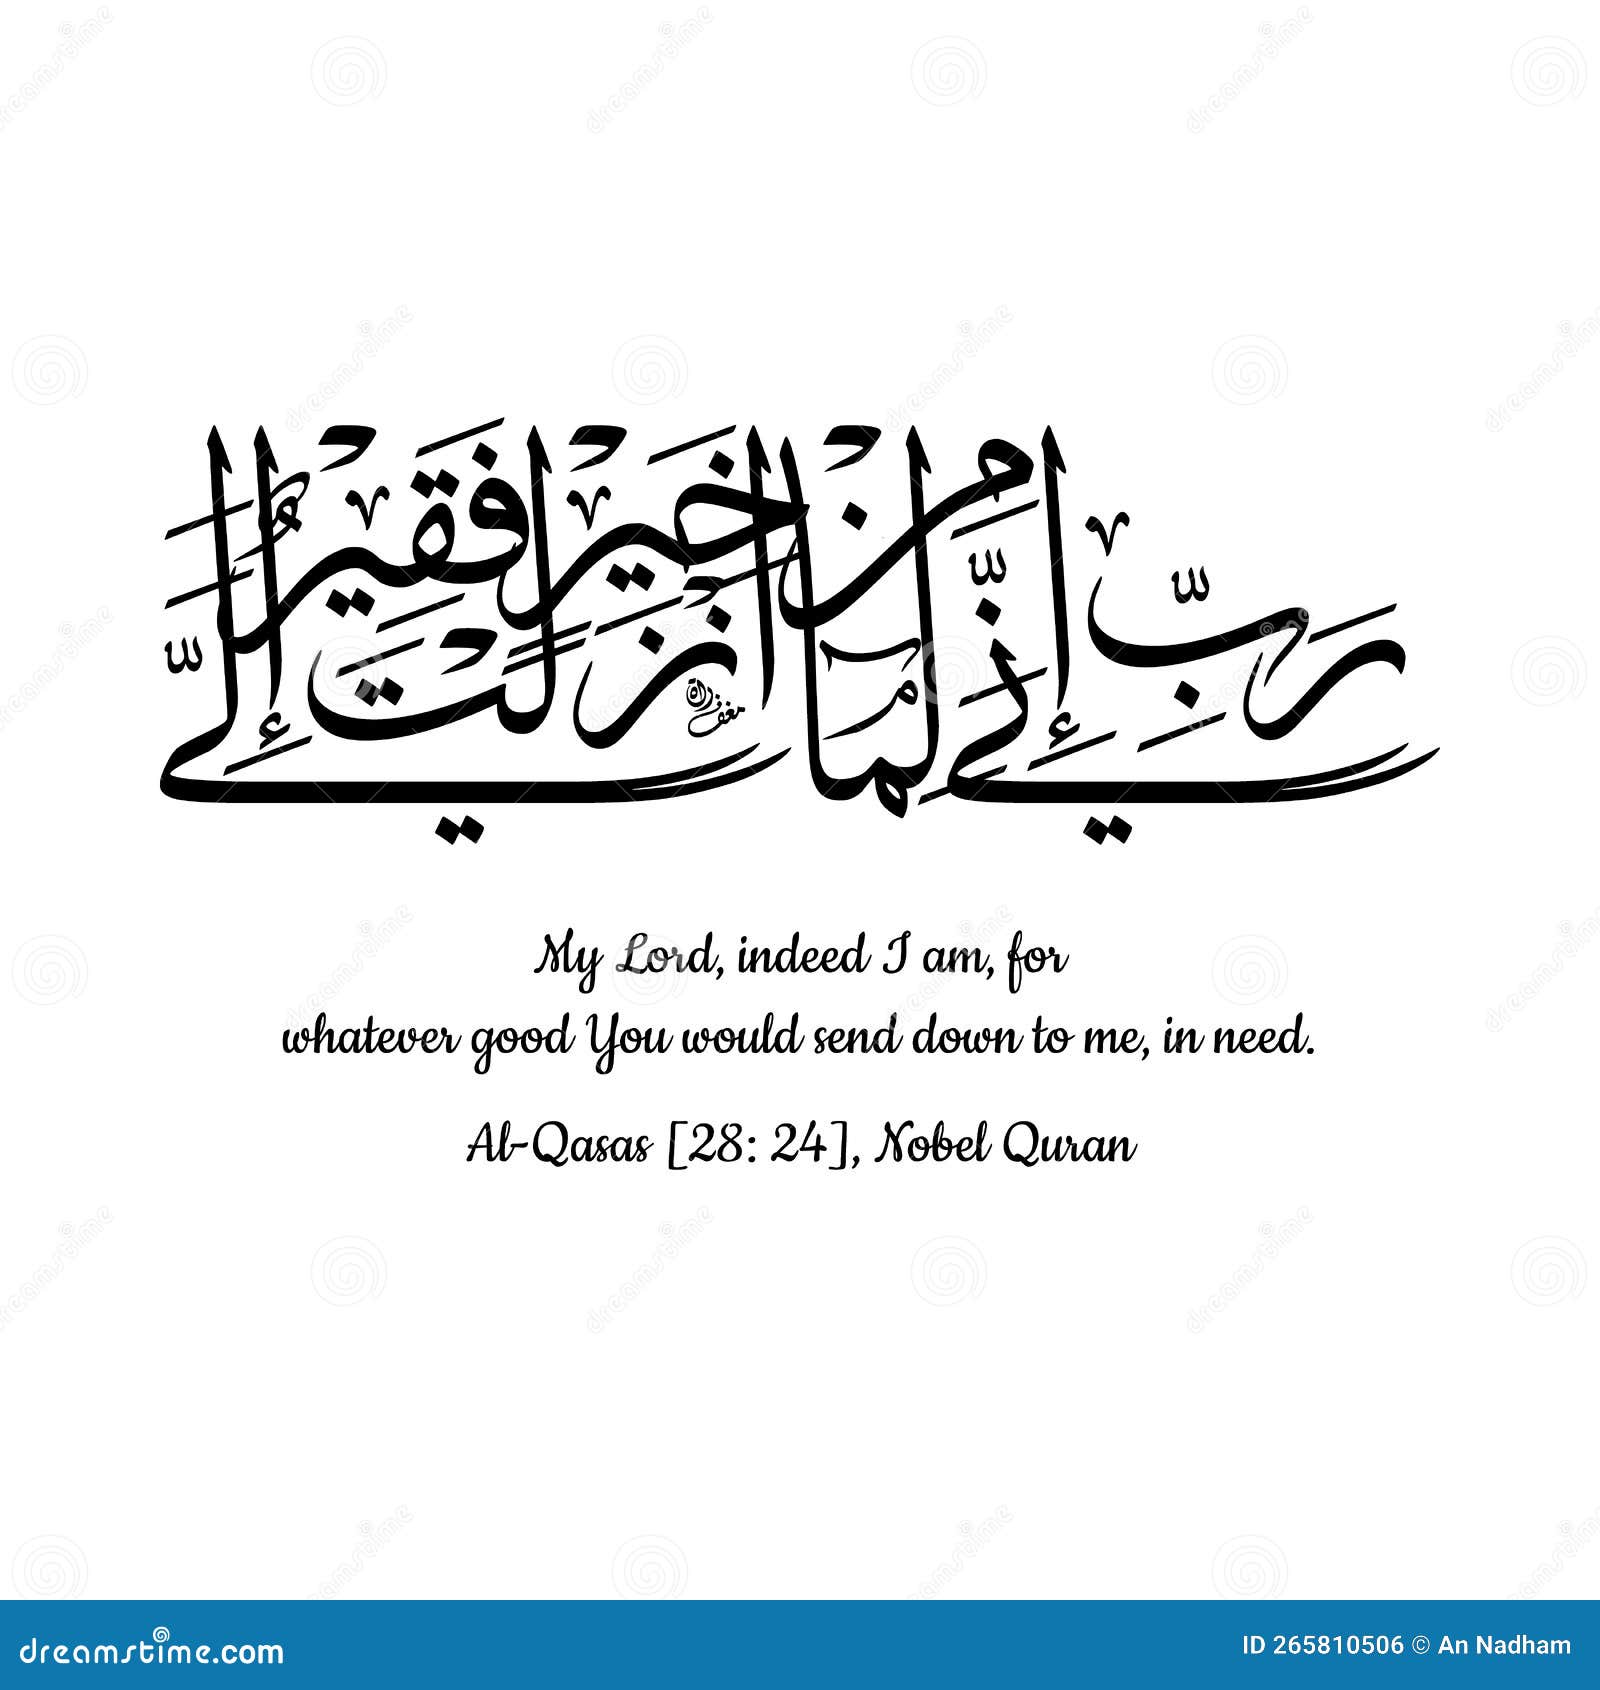 رَبِّ إِنِّي لِمَا أَنْزَلْتَ إِلَيَّ مِنْ خَيْرٍ فَقِيرٌ
My Lord, indeed I am, for
whatever good You would send down to me, in need.
Al-Qasas [28: 24], Nobel Quran
dreamstime.com
ID 265810506 © An Nadham